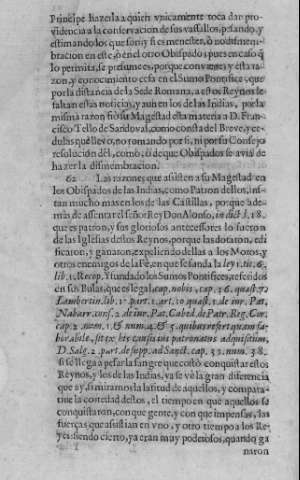 Principe hazerla a quien vnicamente toca dar pro-
videncia a la conservacion de sus vassallos, pesando, y
estimando los que son, y si es menester, ò no dismem-
bracion en este, ò en el otro Obispado; pues en caso q̃
lo permita, se presume es, porque conviene; y esta ra-
zon, y conocimiento cessa en el Sumo Pontifice, que
por la distancia de la Sede Romana, a estos Reynos le
faltan estas noticias, y aun en los de las Indias, por la
misma razon fiò su Magestad esta materia a D. Fran-
cisco Tello de Sandoval, como consta del Breve, y ce-
dulas que llevò, no tomando por si, ni por su Consejo
resolucion dèl, como, ò de que Obispados se avia de
hazer la dismembracion.
62 Las razones que assisten a su Magestad en
los Obispados de las Indias, como Patron dellos, ins-
tan mucho mas en los de las Castillas, porque ade-
màs de assentar el señor Rey Don Alonso, in dict. l. 18.
que es patron, y sus gloriosos antecessores lo fueron
de las Iglesias destos Reynos, porque las dotaron, edi-
ficaron, y ganaron, expeliendo dellas a los Moros, y
otros enemigos de la Fè, en que se funda la ley 1. tit. 6.
lib. 1. Recop. Y fundado los Sumos Pontifices, referidos
en sus Bulas, que es legal, cap. nobis, cap. 16. quæst. 7.
Lambertin. lib. 1. part. 1. art. 10. quæst. 1. de iur. Pat.
Nabarr. cons. 2. de iur. Pat. Cabed. de Patr. Reg. Cor.
cap. 2. num. 1. & num. 4. & 5. quibus refert quam fa-
borabile, sit ex his causis ius patronatus adquisitum,
D. Salg. 2. part. de supp. ad Sanct. cap. 32. num. 38.
si se llega a pesar la sangre que costò conquistar estos
Reynos, y los de las Indias, ya se vè la gran diferencia
que ay, si miramos la latitud de aquellos, y compara-
tiue la cortedad destos, el tiempo en que aquellos se
conquistaron, con que gente, y con que impensas, las
fuerças que assistian en vno, y otro tiempo a los Re-
yes, siendo cierto, ya eran muy poderosos, quando ga
naron